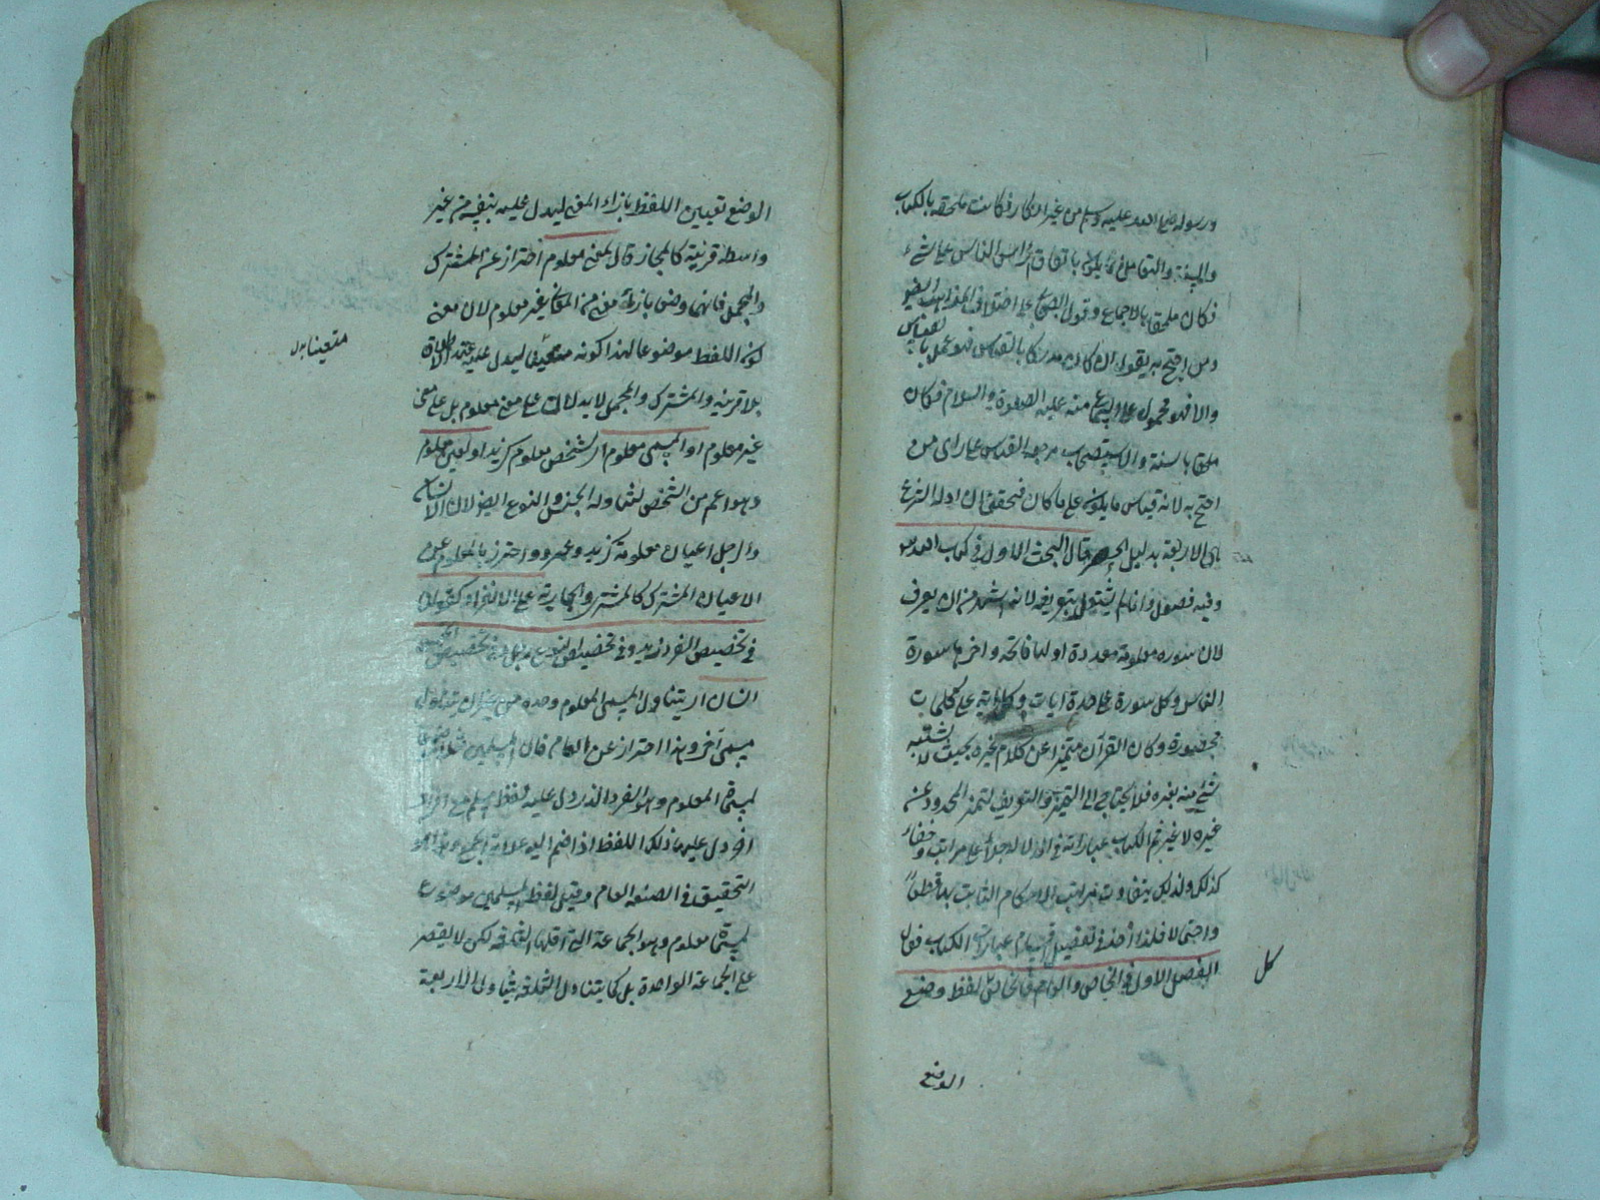 ورسوله صلى الله عليه وسلم من غير انكار فكانت ملحقه بالكتاب
والسنة والتعامل باتفاق الناس على شئ
فكان ملحقا بالاجماع وقول الصحابى
ومن احتج به يقول ان كان مدركا بالقياس فهو عمل بالقياس
والا فهو محمول على السماع منه عليه الصلوة والسلام فكان
ملحقا بالسنة والاستصحاب مرجعه القياس على راى من
احتج به لانه قياس ما يكون على ما كان فتحقق ان ادلة الشرع
هى الاربعة بدليل الحصر قال البحث الاول فى كتاب الله
وفيه فصول وانما لم يشتغل بتعريفه لانه اشهر من ان يعرف
لان سوره معلومة معددة اولها فاتحة واخرها سورة
الناس وكل سورة على عدة ايات وكل اية على كلمات
محصورة وكان القرآن متميزا عن كلام غيره بحيث لا يشتبه
شئ منه بغيره فلا يحتاج الى التعريف لتميز المحدود عن
غيره لا غير ثم الكتاب عباراته فى الدلالة على مراتب وخفاء
كذلك ولذلك يتفاوت مراتب الاحكام الثابت به قطعا
واجتى لا فلذا أخذ فى تفصيل اقسام عبارات الكتاب فقال
الفصل الاول فى الخاص والعام فالخاص لفظ وضع
كل
الوضع
الوضع تعيين اللفظ بازاء المعنى ليدل عليه بنفسه من غير
واسطة قرينة كالمجاز قال لمعنى معلوم احتراز عن المشترك
والمجمل فانهما وضعا بازاء معنى من المعانى غير معلوم لان معنى
كون اللفظ موضوعا لهذا كونه متعينا ليدل عليه عند الاطلاق
بلا قرينة والمشترك والمجمل لا يدلان على معنى معلوم بل على معنى
غير معلوم او المسمى معلوم اى لشخص معلوم كزيد او لمعين معلوم
وهو اعم من الشخص لتناوله الجنس والنوع ايضا لان الانسان
والرجل اعيان معلومة كزيد وعمرو واحترز بالمعلوم عن
الاعيان المشترك كالمشترى والجارية على الانفراد كقولنا
فى تخصيص الفرد زيد وفى تخصيص النوع رجل وفى تخصيص الجنس
انسان اى يتناول المسمى المعلوم وحده من غير ان يتناول
مسمى آخر وهذا احتراز عن العام قال المسلمين
لمسمى المعلوم وهو الفرد الذى دل عليه لفظ مسلم مع افراد
اخر دل عليها ذلك اللفظ اذا ضم اليه علامة الجمع وهذا هو
التحقيق فى الصيغة العام وقيل لفظ المسلمين موضوع
لمسمى معلوم وهو الجماعة التى اقلها الثلثة لكن لا يقصر
على الجماعة الواحدة بل كما يتناول الثلثة يتناول الاربعة
متعينا